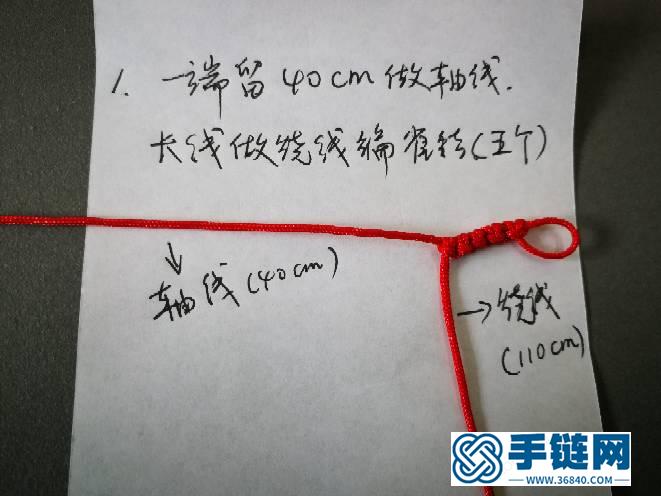 1. 一端留40cm做轴线.
长线做绕线编雀结(五个)
轴线(40cm)
绕线
(110cm)
手链网
WWW.36840.COM